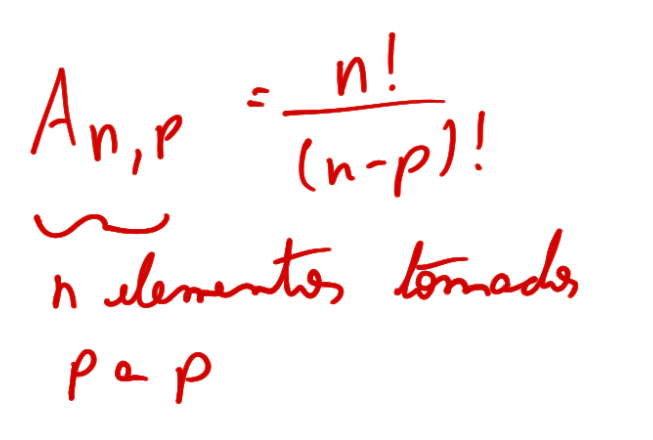 A n,p = n! / (n-p)!
n elementos tomados
p a p